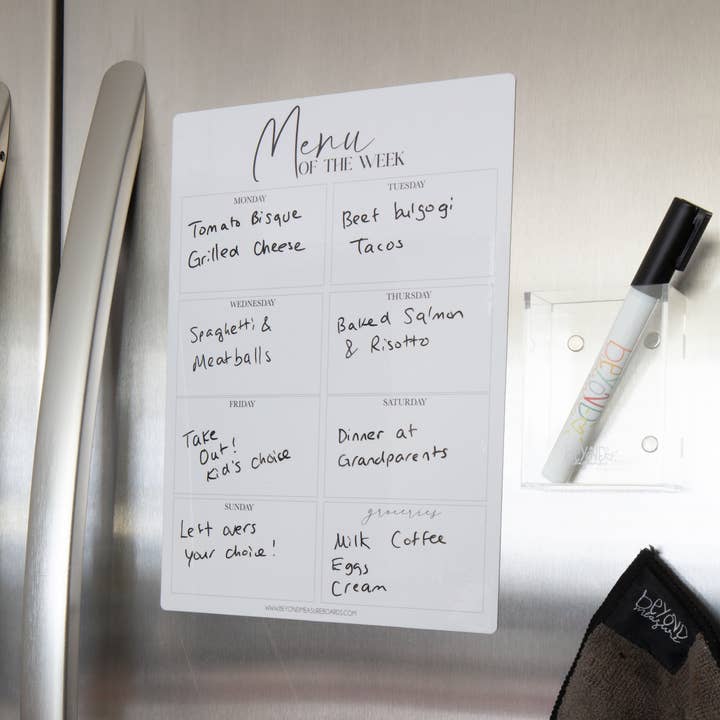 Menu
OF THE WEEK
MONDAY
Tomato Bisque
Grilled Cheese
TUESDAY
Beef bulgogi
Tacos
WEDNESDAY
Spaghetti &
Meatballs
THURSDAY
Baked Salmon
& Risotto
FRIDAY
Take
Out!
Kid's choice
SATURDAY
Dinner at
Grandparents
SUNDAY
Left overs
your choice!
groceries
Milk Coffee
Eggs
Cream
WWW.BEYONDMEASUREBOARDS.COM
BEYOND
BEYOND
measure